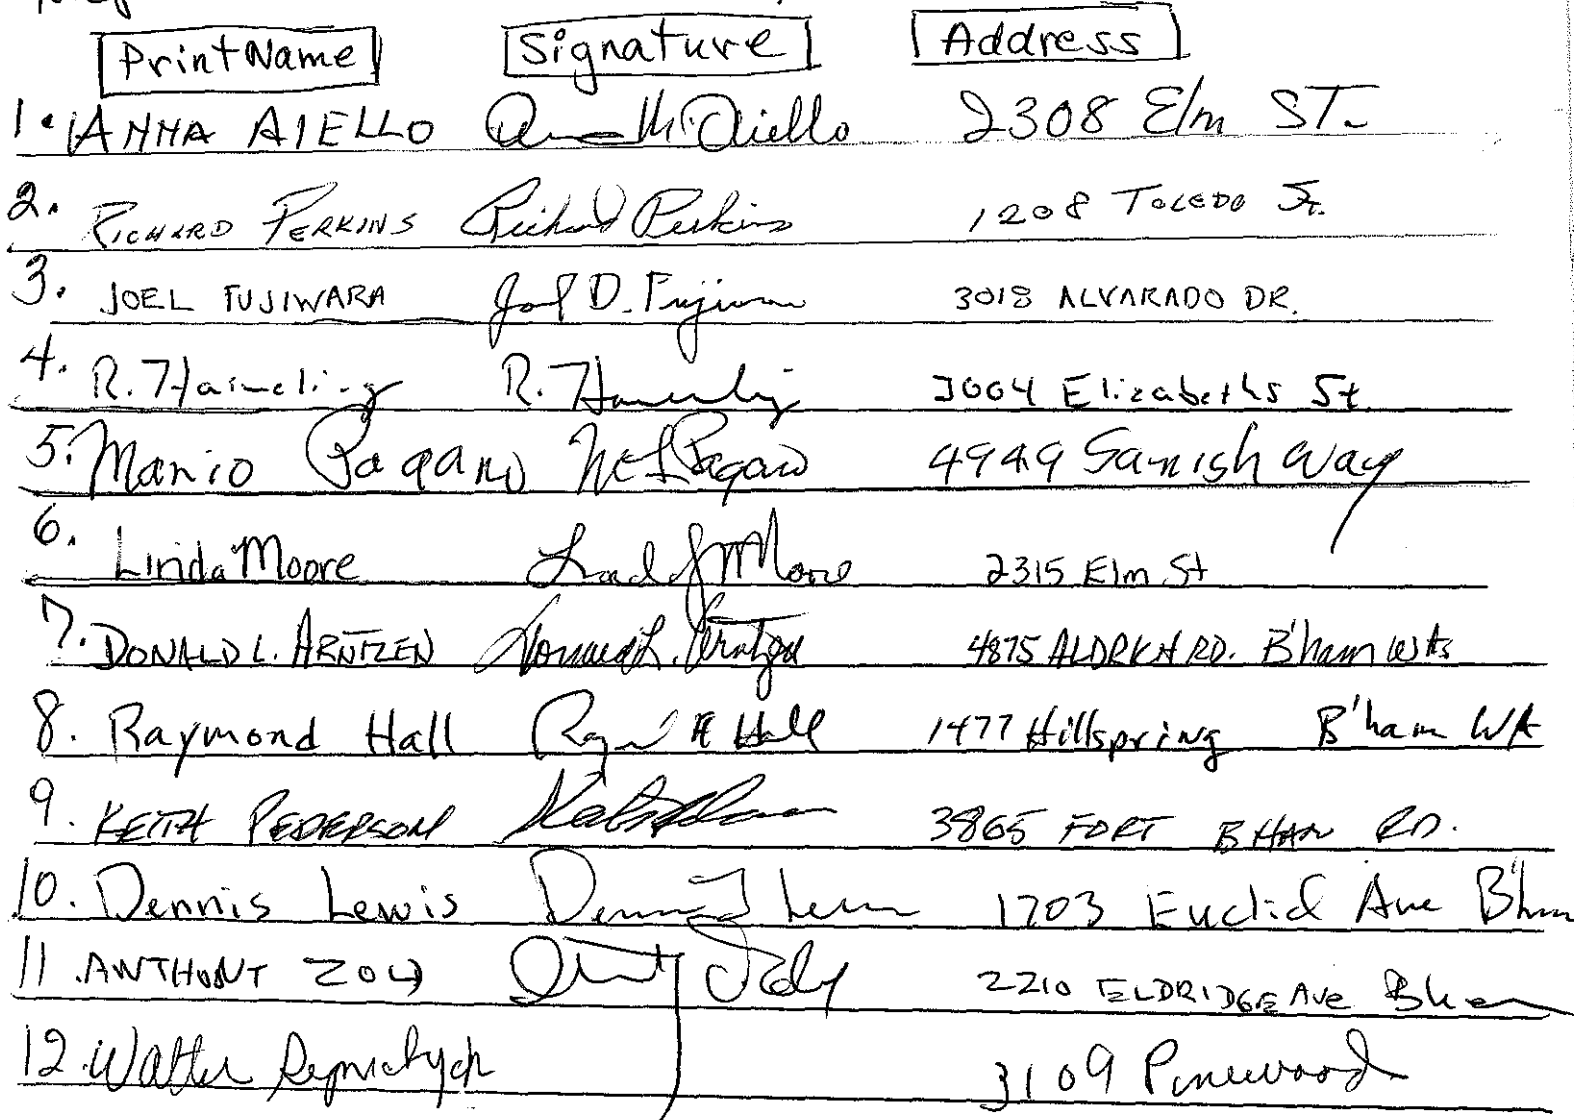 Print Name Signature Address
1. ANNA AIELLO Anna M. Aiello 2308 Elm ST.
2. RICHARD PERKINS Richard Perkins 1208 TOLEDO St.
3. JOEL FUJIWARA Joel D. Fujiwara 3018 ALVARADO DR.
4. R. 3004 Elizabeths St
5. Mario Pagano Pagano 4949 Samish Way
6. Linda Moore Linda J Moore 2315 Elm St
7. DONALD L. ARNTZEN Donald L. Arntzen 4875 ALDRICH RD. B'ham WA
8. Raymond Hall Hall 1477 Hillspring B'ham WA
9. KEITH PEDERSON 3865 FORT BHAM RD.
10. Dennis Lewis Dennis Lewis 1703 Euclid Ave B'ham
11. ANTHONY 2210 ELDRIDGE AVE Bham
12. Walter 3109 Pinewood